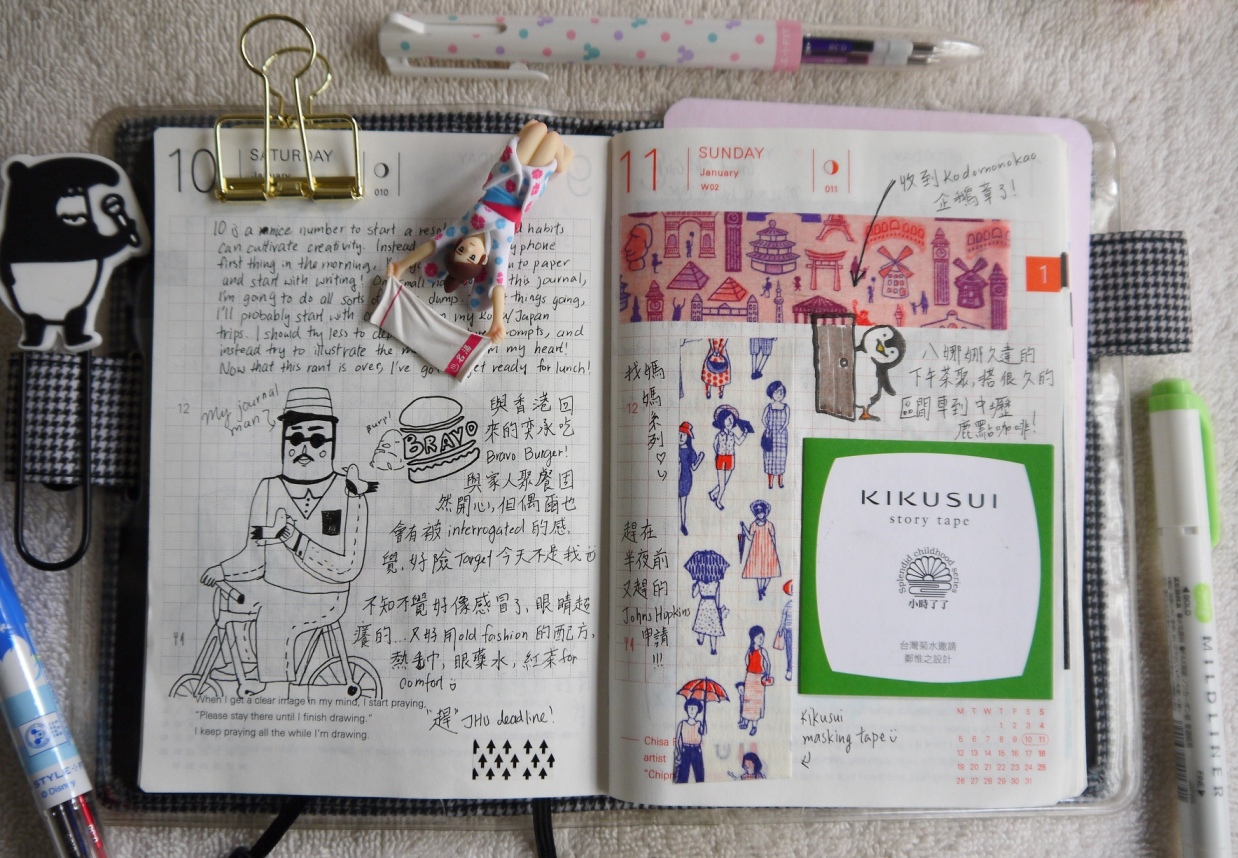 10
SATURDAY
January
010
10 is a nice number to start a resol habits
can cultivate creativity. Instead y phone
first thing in the morning, to paper
and start with writing! On small this journal,
I'm going to do all sorts dump. things going,
I'll probably start with my Kobe/Japan
trips. I should try less to prompts, and
instead try to illustrate the m my heart!
Now that this rant is over, I've go get ready for lunch!
12
my journal
man
Burp!
BRAVO
與香港回
來的奕承吃
Bravo Burger!
與家人聚餐固
然開心,但偶爾也
會有被interrogated的感
覺,好險Target今天不是我
不知不覺好像感冒了,眼睛超
癢的...又好用old fashion的配方,
熱毛巾,眼藥水,紅茶for
comfort
"趕" JHU deadline!
When I get a clear image in my mind, I start praying,
"Please stay there until I finish drawing."
I keep praying all the while I'm drawing.
11
SUNDAY
January
W02
011
收到Kodomonokao
企鵝章了!
1
八娜娜久違的
下午茶聚,搭很久的
區間車到中壢
鹿點咖啡!
12
找媽
媽
系
列
趕在
半夜前
又趕的
Johns Hopkins
申請
!!!
KIKUSUI
story tape
Splendid childhood series
小時了了
台灣菊水邀請
鄭惟之設計
Kikusui
masking tape
Chisa
artist
"Chipr
M T W T F S S
1 2 3 4
5 6 7 8 9 10 11
12 13 14 15 16 17 18
19 20 21 22 23 24 25
26 27 28 29 30 31
STYLE
© Disney
MILDLINER